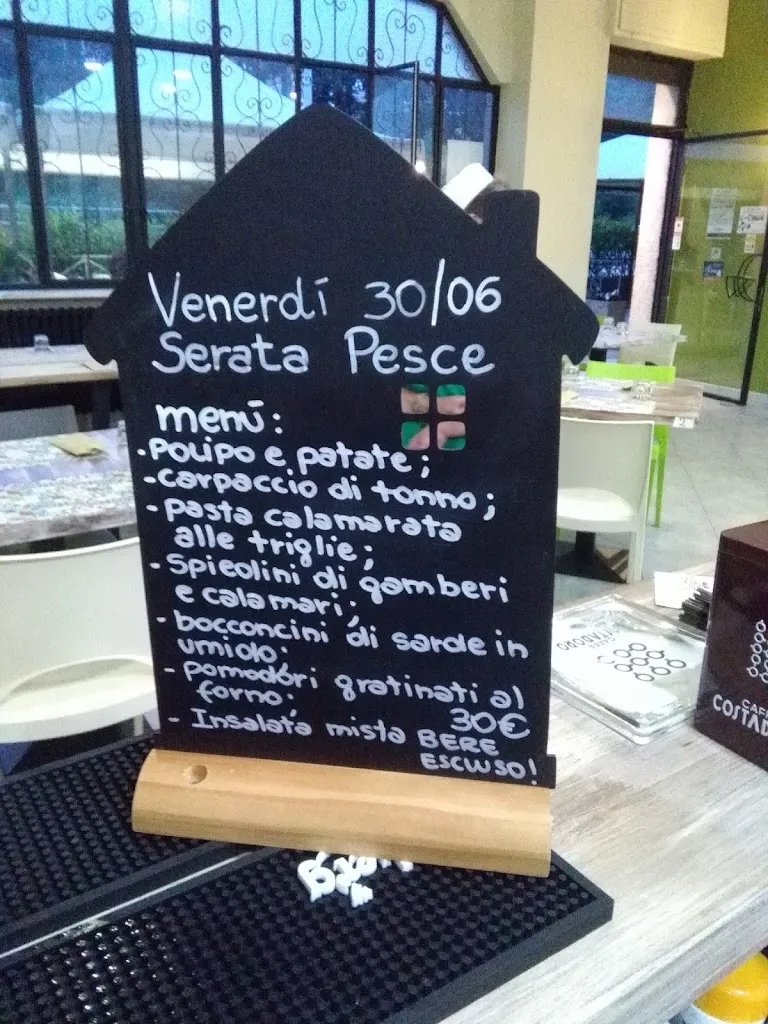 Venerdí 30/06
Serata Pesce
menú:
- POLIPO e patate;
- carpaccio di tonno;
- pasta calamarata
alle triglie;
- Spieolini di gamberi
e calamari;
- bocconcini di sarde in
umido;
- pomodori gratinati al
forno;
30€
- Insalata mista BERE
ESCLUSO!
CAFFÈ
COSTAD